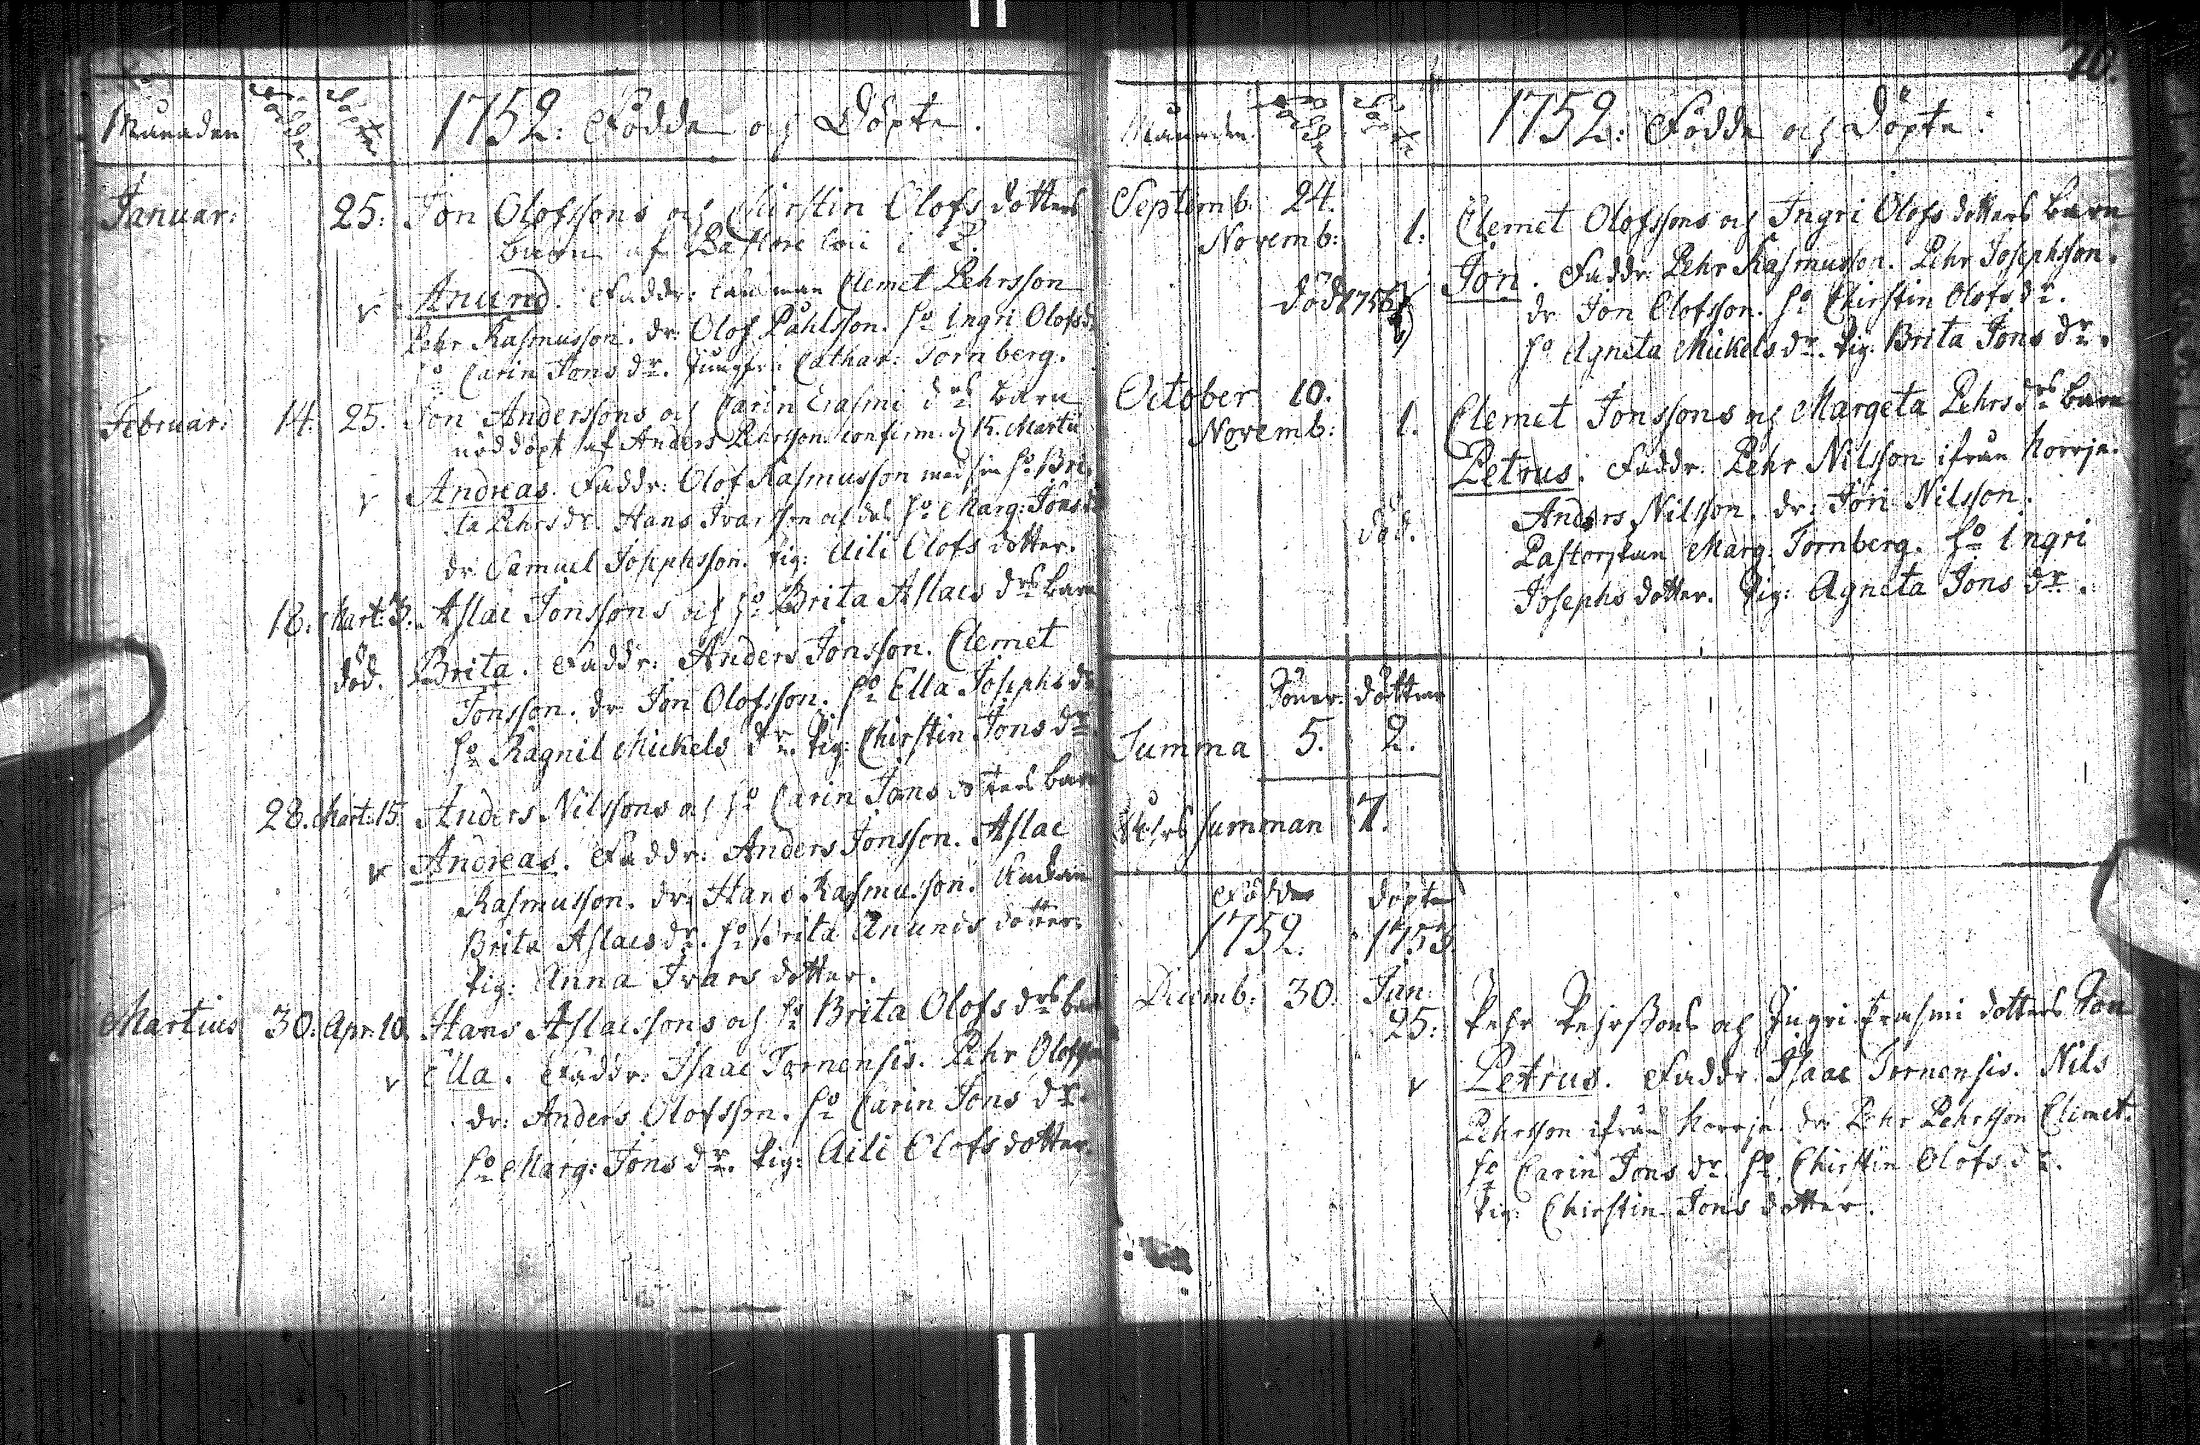 Månaden
Födde
Döpte
1752: Födde och Döpte.
Januar: 25: Jon Olofssons och Chirstin Olofsdotters
barn af Pastore loci i
Anund. Faddr: Clemet Pehrsson
Pehr Rasmusson. dr: Olof Påhlsson. h:o Ingri Olofsd:
h:o Carin Jons dr. Jungfr: Cathar: Tornberg.
Februar: 14. 25. Jon Anderssons och Carin Erasmi drs barn
nöddöpt af Anders Pehrsson confirm. d 15. Martii
v Andreas. Faddr: Olof Rasmusson med sin h:o Bri-
ta Pehrs dr. Hans Ivarsson och des h:o Marg: Jons d:
dr Samuel Josephsson. pig: Aili Olofs dotter.
18. Mart: 3. Aslac Jonssons och h:o Brita Aslacs drs barn
död. Brita. Faddr: Anders Jonsson. Clemet
Jonsson. dr Jon Olofsson. h:o Ella Josephs dr
h:o Ragnil Mickels dr. pig: Chirstin Jons dr.
28. Mart: 15. Anders Nilssons och h:o Carin Jons dotters barn
v Andreas. Faddr: Anders Jonsson. Aslac
Rasmusson. dr: Hans Rasmusson. Enkan
Brita Aslacs dr. h:o Brita Anunds dotter.
pig: Anna Ivars dotter.
Martius 30. Apr: 10. Hans Aslacssons och h:o Brita Olofs drs barn
v Ella. Faddr: Isaac Tornensis. Pehr Olofsson
dr: Anders Olofsson. h:o Carin Jons dr.
h:o Marg: Jons dr. pig: Aili Olofs dotter.
70.
Månaden
Födde
Döpte
1752: Födde och Döpte:
Septemb. 24.
Novemb: 1. Clemet Olofssons och Ingri Olofs dotters barn
Jon. Faddr: Pehr Rasmusson. Pehr Josephsson.
död 1756
dr Jon Olofsson. h:o Chirstin Olofs dr.
h:o Agneta Mickels dr. pig: Brita Jons dr.
October 10.
Novemb: 1. Clemet Jonssons och Margeta Pehrs drs barn
Petrus. Faddr: Pehr Nilsson ifrån Norrje.
död. Anders Nilsson. dr: Jon Nilsson.
Pastorskan Marg: Tornberg. h:o Ingri
Josephs dotter. pig: Agneta Jons dr.
Söner döttrar
Summa 5. 2.
summan 7.
Födde döpte
1752. 1753.
Decemb: 30. Jan:
25: Pehr Pehrssons och Ingri Erasmi dotters Son
v Petrus. Faddr: Isaac Tornensis. Nils
Pehrsson ifrån Norrje. dr: Pehr Pehrsson Clemet.
h:o Carin Jons dr. h:o Chirstin Olofs dr.
pig: Chirstin Jons dotter.